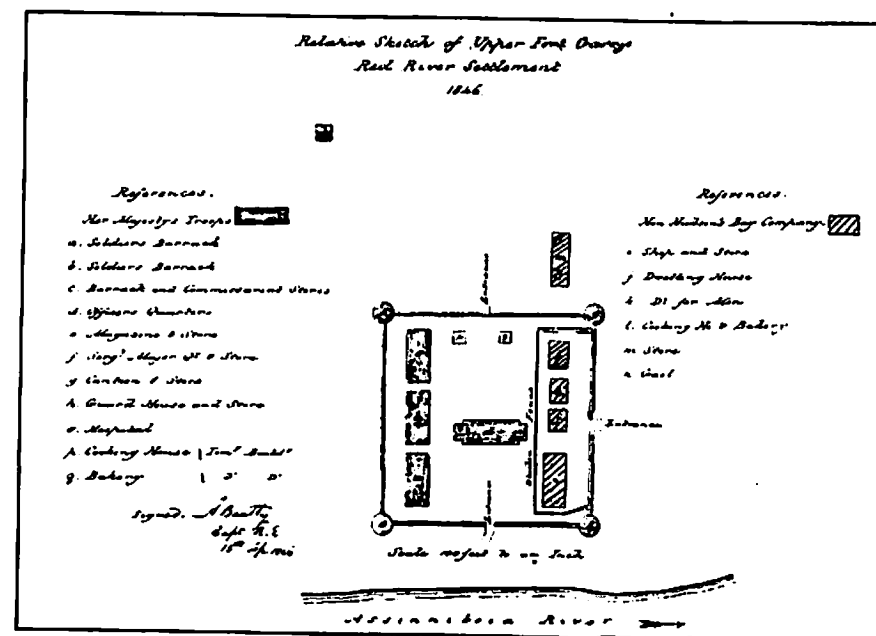 Relative Sketch of Upper Fort Garry
Red River Settlement
1846
References.
Her Majestys Troops
a. Soldiers Barrack
b. Soldiers Barrack
c. Barrack and Commissariat Stores
d. Officers Quarters
e. Magazine & Store
f. Sergt. Major Qr & Store
g. Canteen & Store
h. Guard House and Store
o. Hospital
p. Cooking House
q. Bakery
Signed.
Capt R.E
References.
Hon Hudson's Bay Company
i Shop and Store
j Dwelling House
k Do for Men
l. Cooking Ho & Bakery
m Store
n Gaol
Entrance
Entrance
Entrance
Fence
Scale 100 feet to an Inch
Assinneboin River